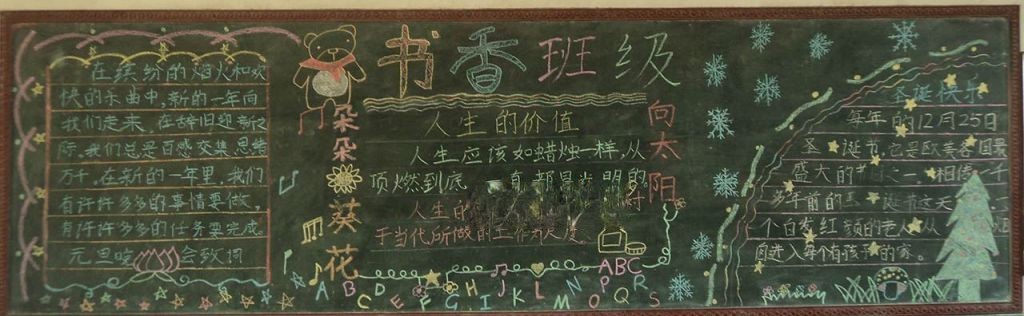 在缤纷的焰火和欢
快的乐曲中,新的一年向
我们走来,在辞旧迎新之
际,我们总是百感交集,思绪
万千,在新的一年里,我们
有许许多多的事情要做,
有许许多多的任务要完成。
元旦晚会致词
书香班级
朵朵葵花
向太阳
人生的价值
人生应该如蜡烛一样,从
顶燃到底 都是光明的
人生的
于当代所做的工作
ABC
A B C D E F G H I J K L M N O P Q R S
圣诞快乐
每年的12月25日
圣诞节,它是欧美各国最
盛大的节日之一。相传一千
多年前的圣诞节这天
个白发红颜的老人从
囱进入每个有孩子的家。